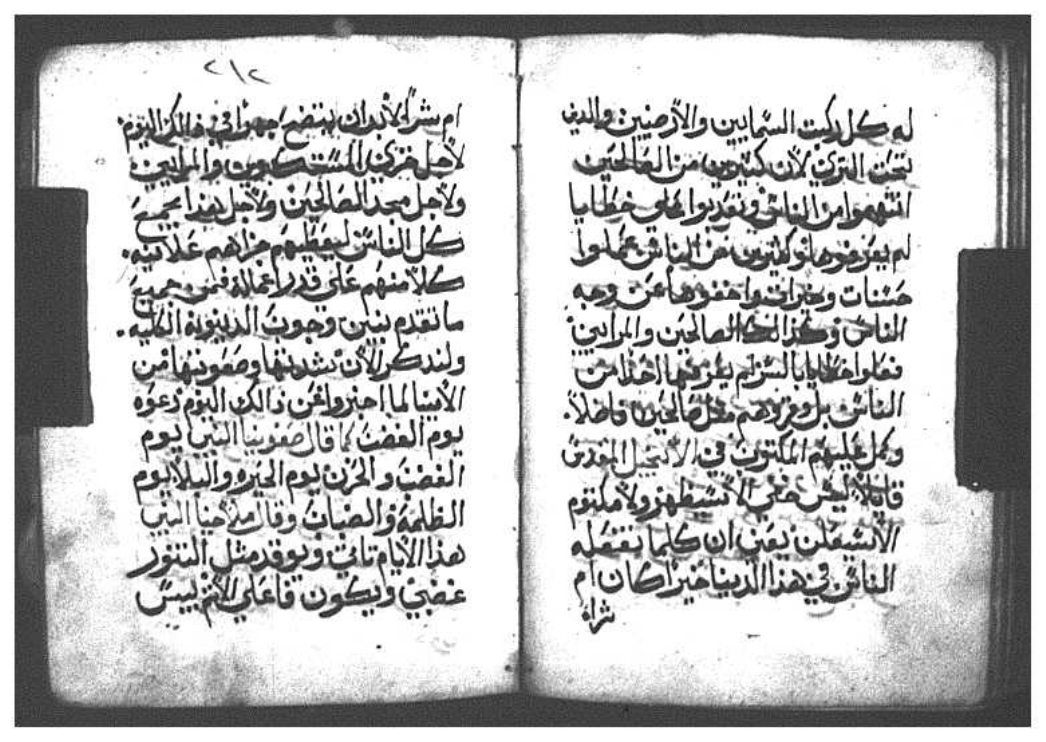 له كل ركبت السمايين والارضيين والذين
تحت الثري لان كثيرين من الصالحين
اتتهموا من الناس وتعذبوا علي خطايا
لم يعرفوها وكثيرين من الناس عملوا
حسنات وخيرات واخفوها عن وجه
الناس وكذالك الصالحين والمرايين
فعلوا خطايا بالسر لم يعرفها احدا من
الناس بل وقروهم مثل صالحين فاضلا
وكمل عليهم المكتوب في الانجيل المقدس
قايلا ليس خفي الا سيظهر ولا مكتوم
الا سيعلن يعني ان كلما تفعله
الناس في هذا الدنيا خيرا كان ام
شرا
٢١٢
ام شرا لابد ان يتضح جهرا في ذالك اليوم
لاجل خزي المستكبرين والمرايين
ولاجل مجد الصالحين ولاجل هذا يجمع
كل الناس ليعطيهم جزاهم علانيه
كلا منهم علي قدر اعماله فمن جميع
ما تقدم تبين وجوب الدينونة الكليه
ولنذكر الان شدتها وصعوبتها من
الانبيا لما اخبروا عن ذالك اليوم دعوه
يوم الغضب كما قال صفونيا النبي يوم
الغضب والحزن يوم الحيره والبلا يوم
الظلمة والضباب وقال ملاخيا النبي
هذا الايام تاتي ويوقد مثل التنور
غضبي ويكون فاعلي الاثم يبس